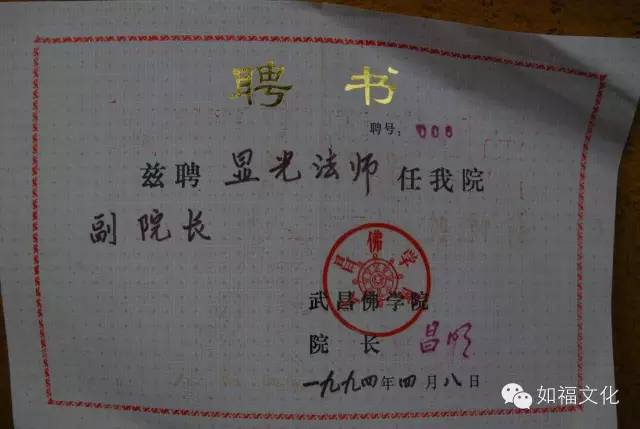 聘书
聘号：006
兹聘 显光法师 任我院
副院长
昌佛学
武昌佛学院
院长 昌明
一九九四年四月八日
如福文化